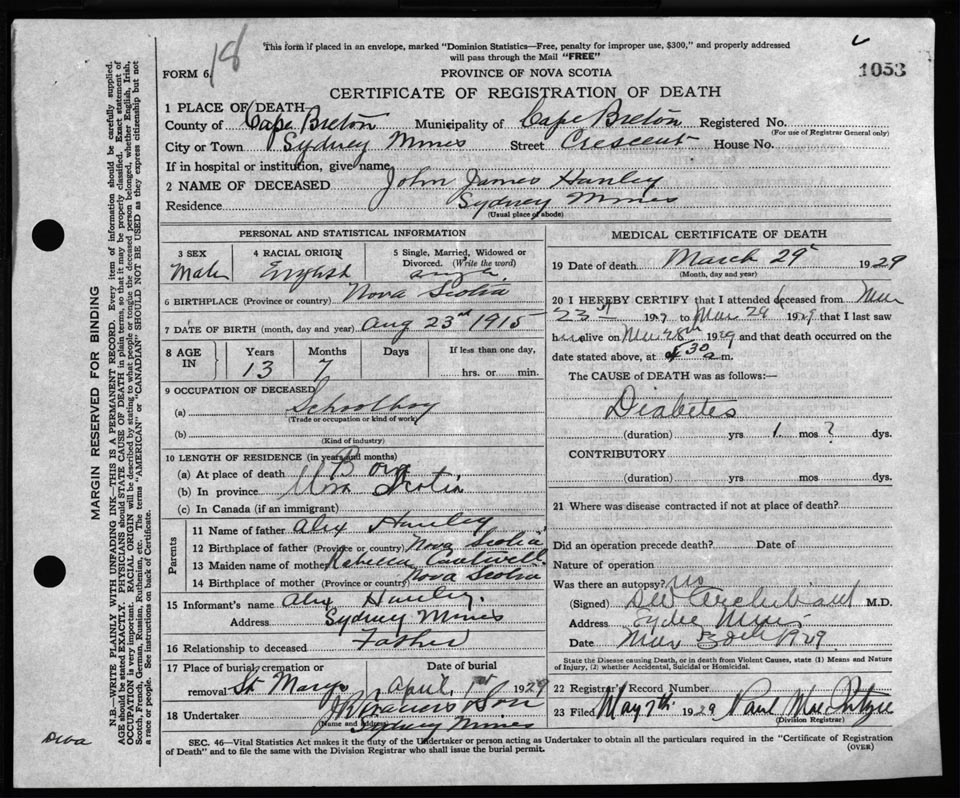 18
This form if placed in an envelope, marked "Dominion Statistics—Free, penalty for improper use, $300," and properly addressed
will pass through the Mail "FREE"
FORM 6.
PROVINCE OF NOVA SCOTIA
1053
CERTIFICATE OF REGISTRATION OF DEATH
1 PLACE OF DEATH
County of Cape Breton Municipality of Cape Breton Registered No.
(For use of Registrar General only)
City or Town Sydney Mines Street Crescent House No.
If in hospital or institution, give name
2 NAME OF DECEASED John James Hanley
Residence Sydney Mines
(Usual place of abode)
PERSONAL AND STATISTICAL INFORMATION
3 SEX 4 RACIAL ORIGIN 5 Single, Married, Widowed or
Divorced. (Write the word)
Male English single
6 BIRTHPLACE (Province or country) Nova Scotia
7 DATE OF BIRTH (month, day and year) Aug 23rd 1915
8 AGE IN Years Months Days If less than one day,
13 7 hrs. or min.
9 OCCUPATION OF DECEASED
(a) Schoolboy
(Trade or occupation or kind of work)
(b)
(Kind of industry)
10 LENGTH OF RESIDENCE (in years and months)
(a) At place of death Born
(b) In province Nova Scotia
(c) In Canada (if an immigrant)
Parents
11 Name of father Alex Hanley
12 Birthplace of father (Province or country) Nova Scotia
13 Maiden name of mother Cantwell
14 Birthplace of mother (Province or country) Nova Scotia
15 Informant's name Alex Hanley.
Address Sydney Mines
16 Relationship to deceased Father
17 Place of burial, cremation or Date of burial
removal St Marys April 1st 1929
18 Undertaker & Son
(Name and Address)
Sydney Mines
MEDICAL CERTIFICATE OF DEATH
19 Date of death March 29 1929
(Month, day and year)
20 I HEREBY CERTIFY that I attended deceased from Mar
23 1929 to Mar 29 1929 that I last saw
him alive on Mar 28th 1929 and that death occurred on the
date stated above, at 30 a.m.
The CAUSE of DEATH was as follows:—
Diabetes
(duration) yrs 1. mos ? dys.
CONTRIBUTORY
(duration) yrs. mos. dys.
21 Where was disease contracted if not at place of death?
Did an operation precede death? Date of
Nature of operation
Was there an autopsy? no
(Signed) Archibald M.D.
Address Sydney Mines
Date Mar 30th 1929
State the Disease causing Death, or in death from Violent Causes, state (1) Means and Nature
of Injury, (2) whether Accidental, Suicidal or Homicidal.
22 Registrar's Record Number
23 Filed May 7th 1929 Paul
(Division Registrar)
SEC. 46—Vital Statistics Act makes it the duty of the Undertaker or person acting as Undertaker to obtain all the particulars required in the "Certificate of Registration
of Death" and to file the same with the Division Registrar who shall issue the burial permit.
(OVER)
MARGIN RESERVED FOR BINDING
N.B.—WRITE PLAINLY WITH UNFADING INK—THIS IS A PERMANENT RECORD. Every item of information should be carefully supplied.
AGE should be stated EXACTLY. PHYSICIANS should STATE CAUSE OF DEATH in plain terms, so that it may be properly classified. Exact statement of
OCCUPATION is very important. RACIAL ORIGIN will be described by stating to what people or tongue the deceased person belonged, whether English, Irish,
Scotch, French, German, Russian, Ruthenian, etc. The terms "AMERICAN" or "CANADIAN" SHOULD NOT BE USED as they express citizenship but not
a race or people. See instructions on back of Certificate.